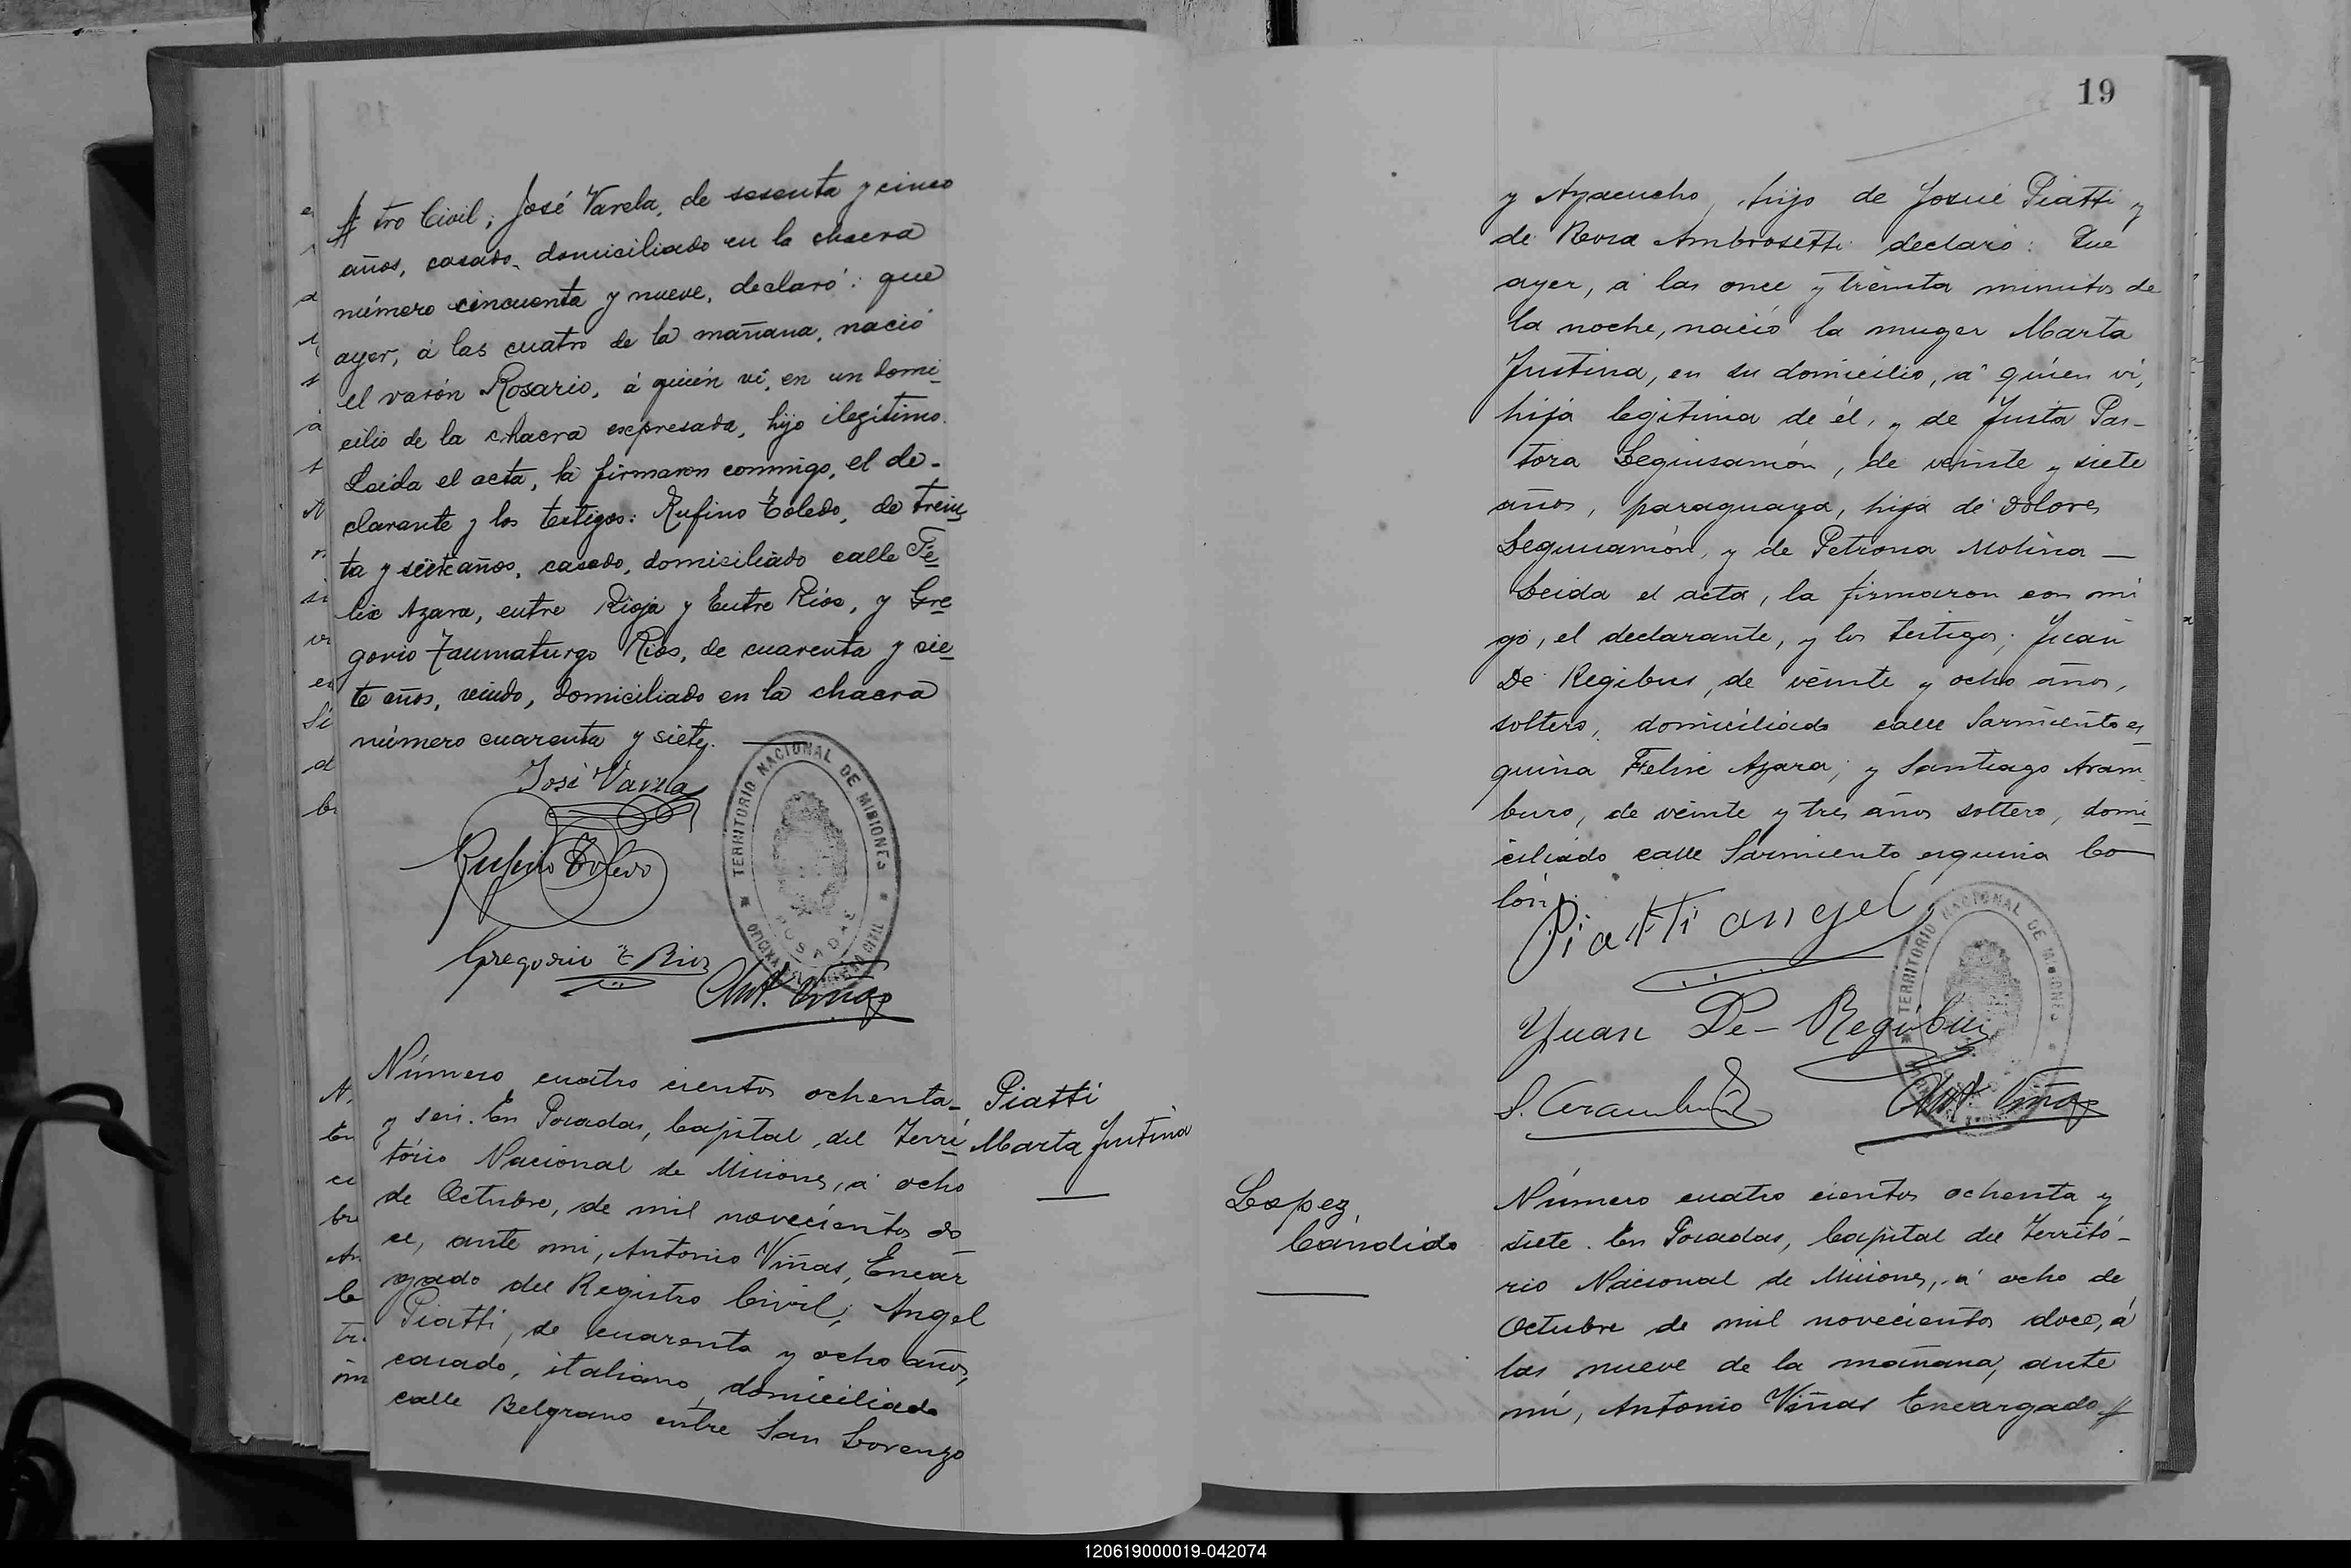 tro Civil; José Varela, de sesenta y cinco
años, casado, domiciliado en la chacra
número cincuenta y nueve, declaró: que
ayer, á las cuatro de la mañana, nació
el varón Rosario, á quién ví, en un domi
cilio de la chacra expresada, hijo ilegítimo.
Leida el acta, la firmaron conmigo, el de-
clarante y los testigos: Rufino Toledo, de trein
ta y siete años, casado, domiciliado calle Fé
lix Azara, entre Rioja y Entre Ríos, y Gre
gorio Taumaturgo Ríos, de cuarenta y sie
te años, viudo, domiciliado en la chacra
número cuarenta y siete.
José Varela
Rufino Toledo
Gregorio T Rios
Ant. Viñas
TERRITORIO NACIONAL DE MISIONES
POSADAS
Número cuatro cientos ochenta
y seis. En Posadas, Capital, del Terri
tório Nacional de Misiones, á ocho
de Octubre, de mil novecientos do
ce, ante mi, Antonio Viñas, Encar
gado del Registro Civil; Angel
Piatti, de cuarenta y ocho años,
casado, italiano, domiciliado
calle Belgrano entre San Lorenzo
Piatti
Marta Justina
19
y Ayacucho, hijo de Josué Piatti y
de Rosa Ambrosetti declaró: Que
ayer, á las once y treinta minutos de
la noche, nació la muger Marta
Justina, en su domicilio, á quien ví,
hija legitima de él, y de Justa Pas-
tora Leguisamón, de veinte y siete
años, paraguaya, hija de Dolores
Leguisamón, y de Petrona Molina —
Leida el acta, la firmaron con mi
go, el declarante, y los testigos; Juan
De Regibus, de veinte y ocho años,
soltero, domiciliado calle Sarmiento es
quina Felix Azara; y Santiago Aram
buro, de veinte y tres años soltero, domi
ciliado calle Sarmiento esquina Co
lón.
Piatti angel
Yuan De-Regibus
S. Aramburo
Ant. Viñas
TERRITORIO NACIONAL DE MISIONES
Lopez,
Cándido
Número cuatro cientos ochenta y
siete. En Posadas, Capital del Territó-
rio Nacional de Misiones, á ocho de
Octubre de mil novecientos doce, á
las nueve de la mañana, ante
mi, Antonio Viñas Encargado
120619000019-042074